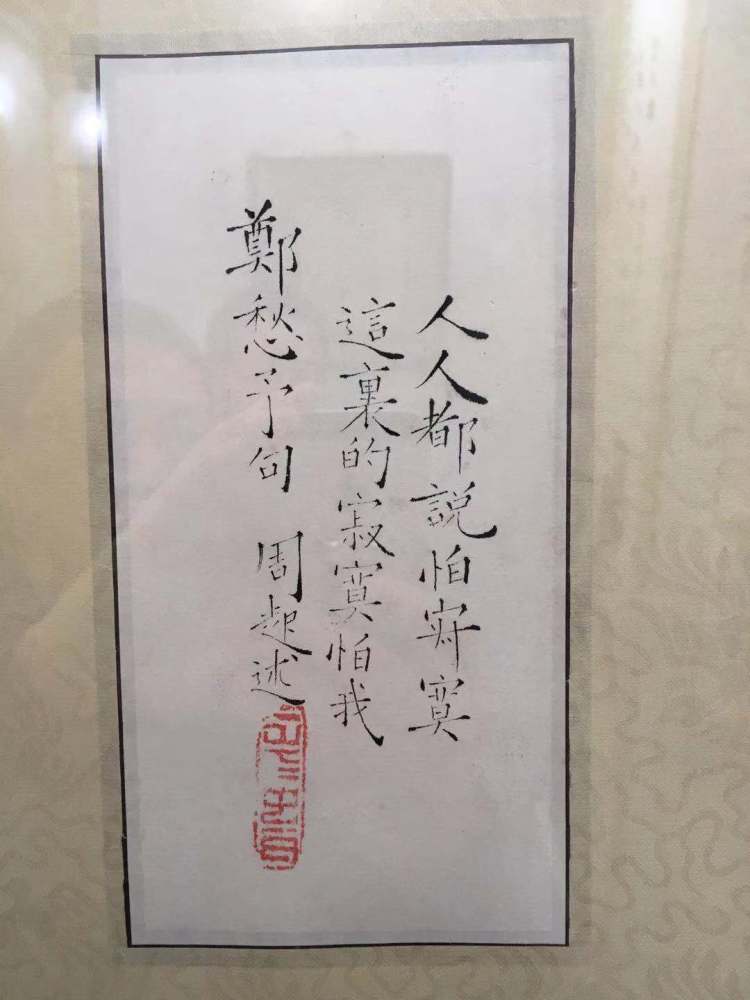 人人都説怕寂寞
這裏的寂寞怕我
鄭愁予句 周起述